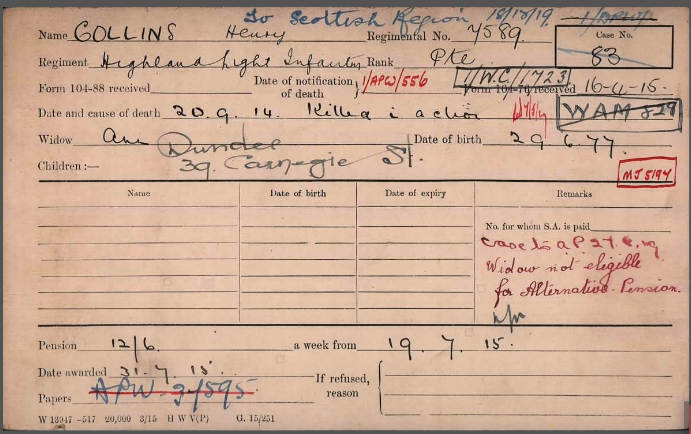 To Scottish Region 18/12/19.
Name COLLINS Henry Regimental No. 7589. Case No. 83
Regiment Highland Light Infantry Rank Pte
Form 104-88 received Date of notification of death 1/APW/556 1/W.C/1723 Form 104-76 received 16-4-15.
Date and cause of death 20.9.14. Killed i action WAM 829
Widow Ann Date of birth 29.6.77.
Dundee
39. Carnegie St.
Children :—
MJ 5194
Name Date of birth Date of expiry Remarks
No. for whom S.A. is paid
Case to AP 27.
Widow not eligible
for Alternative Pension.
Pension 12/6. a week from 19.7.15.
Date awarded 31.7.15.
Papers APW 3/595 If refused, reason
W 13947 -517 20,000 3/15 H W V(P) G. 15/251